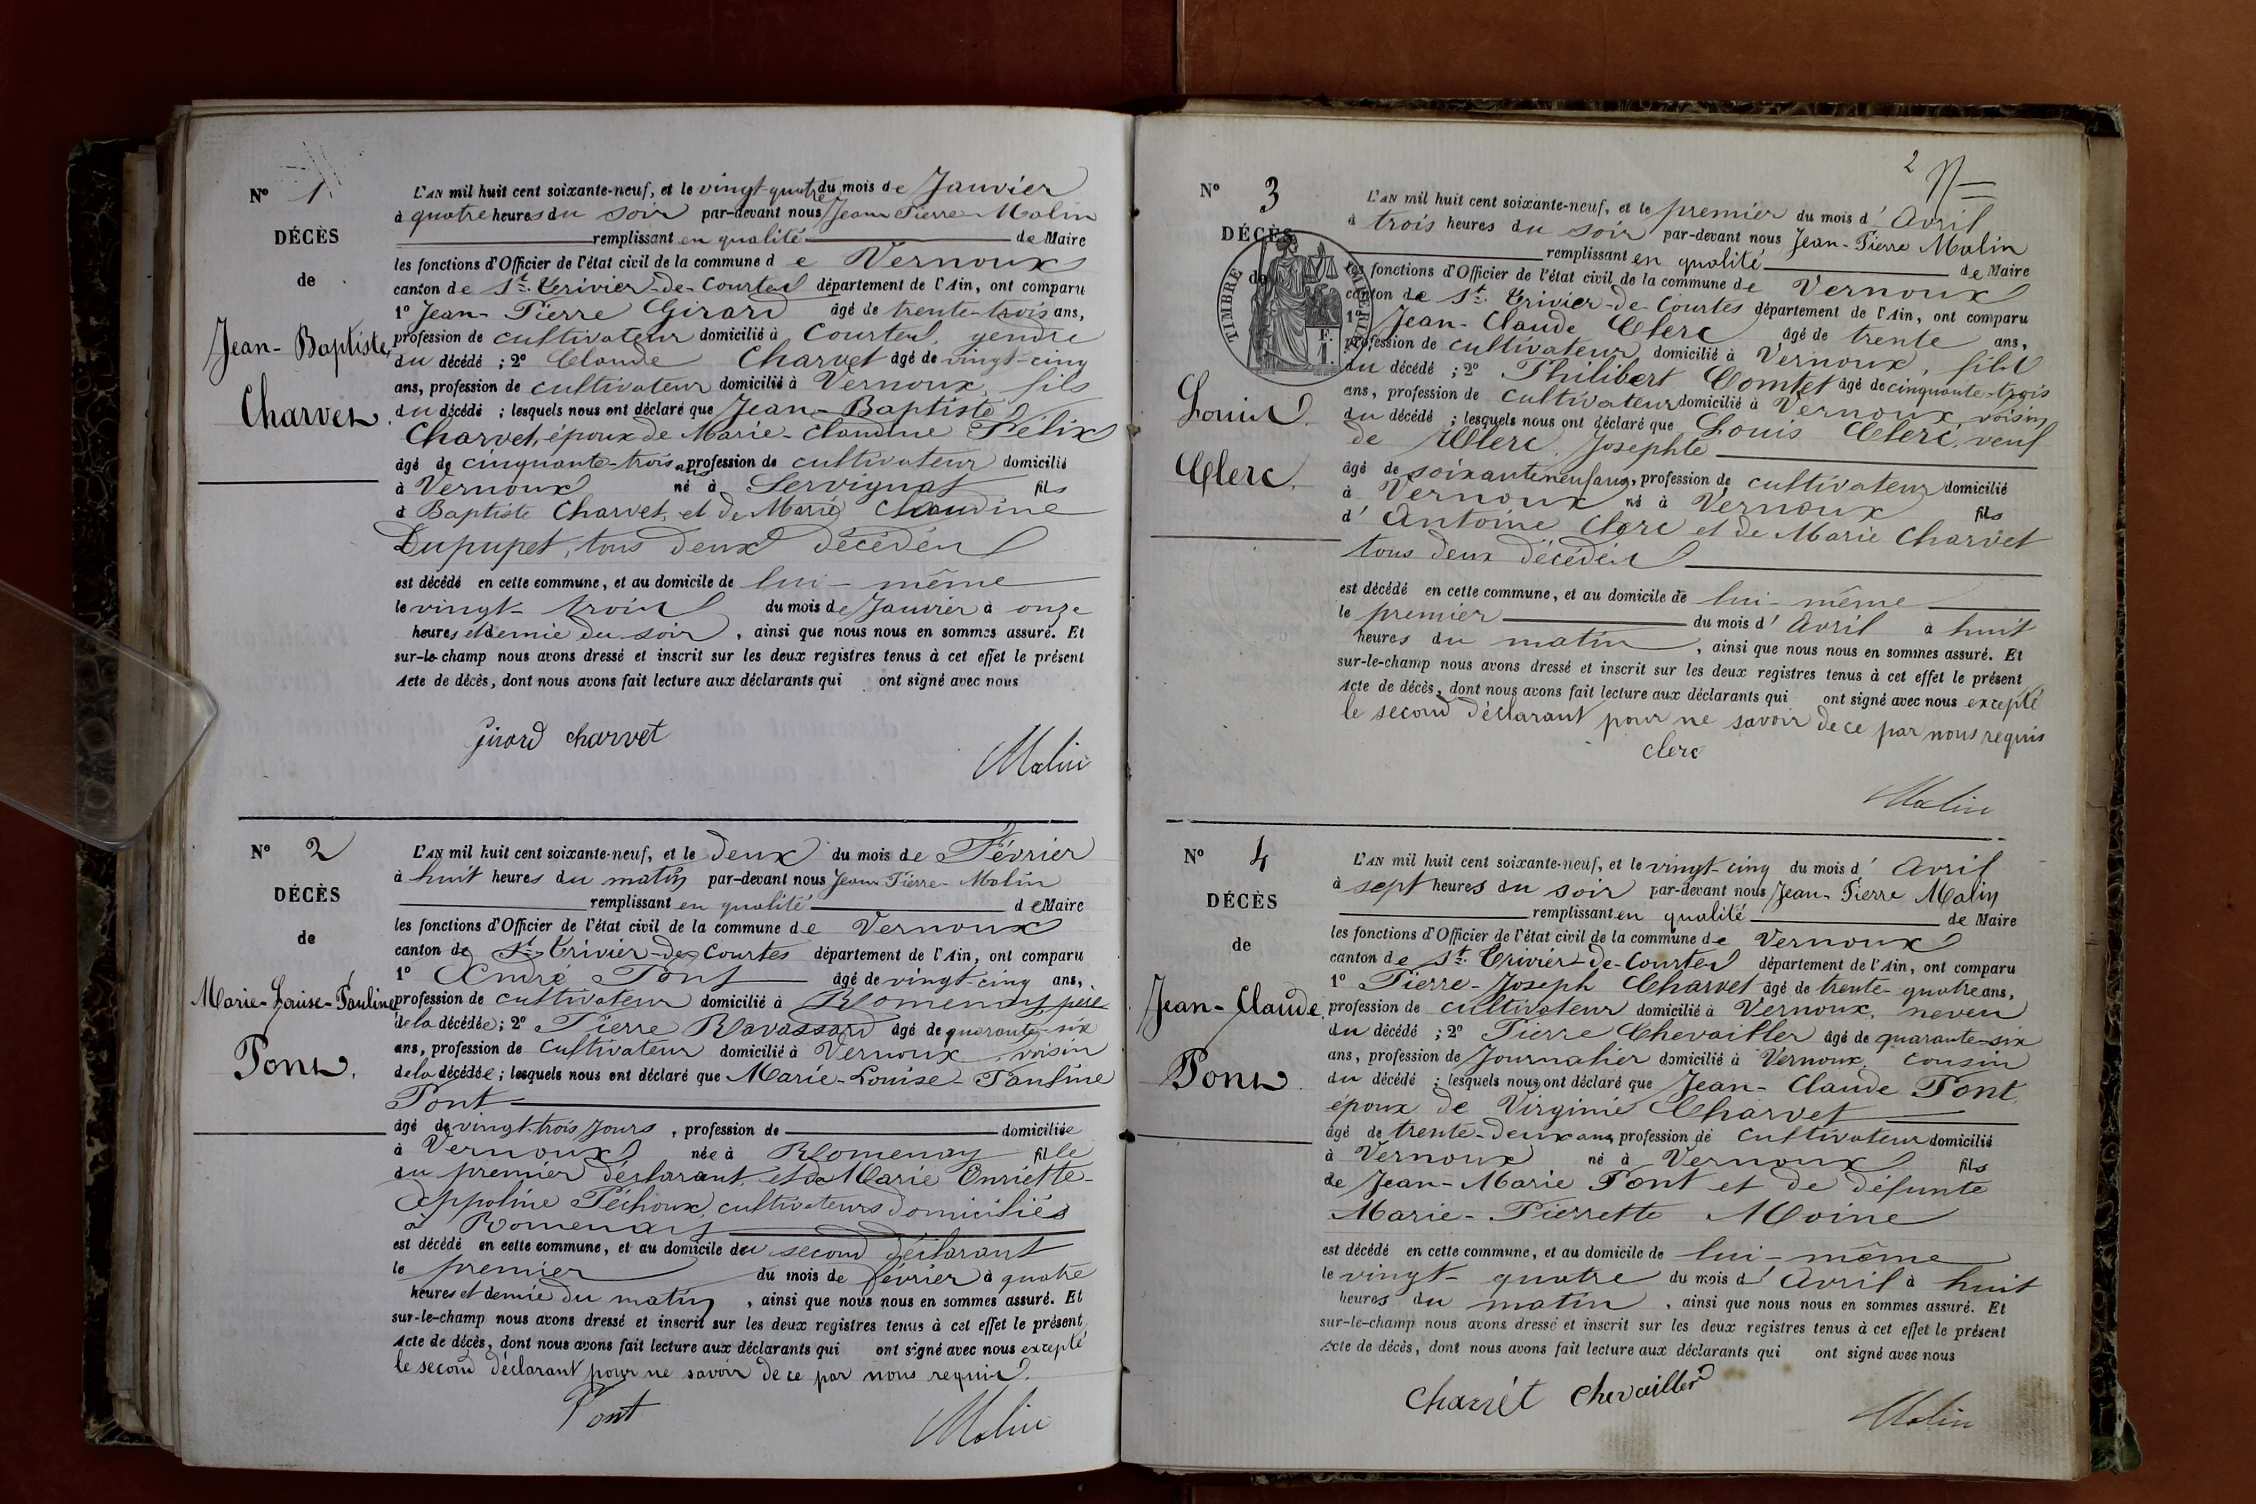 N° 1
DÉCÈS
de
Jean-Baptiste
Charvet.
L'AN mil huit cent soixante-neuf, et le vingt-quatre du mois de Janvier
à quatre heures du soir par-devant nous Jean Pierre Malin
remplissant en qualité de Maire
les fonctions d'Officier de l'état civil de la commune de Vernoux
canton de St. Trivier-de-Courtes département de l'Ain, ont comparu
1° Jean-Pierre Girard âgé de trente-trois ans,
profession de cultivateur domicilié à Courtes, gendre
du décédé ; 2° Claude Charvet âgé de vingt-cinq
ans, profession de cultivateur domicilié à Vernoux, fils
du décédé ; lesquels nous ont déclaré que Jean-Baptiste
Charvet, époux de Marie-Claudine Félix
âgé de cinquante-trois ans profession de cultivateur domicilié
à Vernoux né à Servignat fils
d Baptiste Charvet, et de Marie Claudine
Dupupet, tous deux décédés
est décédé en cette commune, et au domicile de lui-même
le vingt-trois du mois de Janvier à onze
heures et demie du soir, ainsi que nous nous en sommes assuré. Et
sur-le-champ nous avons dressé et inscrit sur les deux registres tenus à cet effet le présent
Acte de décès, dont nous avons fait lecture aux déclarants qui ont signé avec nous
Girard charvet
Malin
N° 2
DÉCÈS
de
Marie-Louise-Pauline
Pont.
L'AN mil huit cent soixante-neuf, et le deux du mois de Février
à huit heures du matin par-devant nous Jean-Pierre-Malin
remplissant en qualité de Maire
les fonctions d'Officier de l'état civil de la commune de Vernoux
canton de St-Trivier-de-Courtes département de l'Ain, ont comparu
1° André Pont âgé de vingt-cinq ans,
profession de cultivateur domicilié à Romenay, père
de la décédée ; 2° Pierre Ravassard âgé de quarante-six
ans, profession de cultivateur domicilié à Vernoux, voisin
de la décédée ; lesquels nous ont déclaré que Marie-Louise-Pauline
Pont
âgé de vingt-trois jours, profession de domiciliée
à Vernoux née à Romenay fille
du premier déclarant, et de Marie Enriette-
Appoline Péchoux, cultivateurs domiciliés
à Romenay
est décédé en cette commune, et au domicile du second déclarant
le premier du mois de février à quatre
heures et demie du matin, ainsi que nous nous en sommes assuré. Et
sur-le-champ nous avons dressé et inscrit sur les deux registres tenus à cet effet le présent
Acte de décès, dont nous avons fait lecture aux déclarants qui ont signé avec nous excepté
le second déclarant pour ne savoir de ce par nous requis.
Pont
Malin
2
N° 3
DÉCÈS
de
TIMBRE IMPÉRIAL
1 F.
Louis
Clerc.
L'AN mil huit cent soixante-neuf, et le premier du mois d'Avril
à trois heures du soir par-devant nous Jean-Pierre Malin
remplissant en qualité de Maire
les fonctions d'Officier de l'état civil de la commune de Vernoux
canton de St. Trivier-de-Courtes département de l'Ain, ont comparu
1° Jean-Claude Clerc âgé de trente ans,
profession de cultivateur domicilié à Vernoux, fils
du décédé ; 2° Philibert Comtet âgé de cinquante-trois
ans, profession de cultivateur domicilié à Vernoux, voisin
du décédé ; lesquels nous ont déclaré que Louis Clerc, veuf
de Clerc Josephte
âgé de soixante neuf ans, profession de cultivateur domicilié
à Vernoux né à Vernoux fils
d'Antoine Clerc et de Marie Charvet
tous deux décédés
est décédé en cette commune, et au domicile de lui-même
le premier du mois d'Avril à huit
heures du matin, ainsi que nous nous en sommes assuré. Et
sur-le-champ nous avons dressé et inscrit sur les deux registres tenus à cet effet le présent
Acte de décès, dont nous avons fait lecture aux déclarants qui ont signé avec nous excepté
le second déclarant pour ne savoir de ce par nous requis
clerc
Malin
N° 4
DÉCÈS
de
Jean-Claude
Pont.
L'AN mil huit cent soixante-neuf, et le vingt-cinq du mois d'Avril
à sept heures du soir par-devant nous Jean-Pierre Malin
remplissant en qualité de Maire
les fonctions d'Officier de l'état civil de la commune de Vernoux
canton de St. Trivier-de-Courtes département de l'Ain, ont comparu
1° Pierre-Joseph Charvet âgé de trente-quatre ans,
profession de cultivateur domicilié à Vernoux, neveu
du décédé ; 2° Pierre Chevailler âgé de quarante-six
ans, profession de Journalier domicilié à Vernoux, cousin
du décédé ; lesquels nous ont déclaré que Jean-Claude Pont,
époux de Virginie Charvet
âgé de trente-deux ans profession de cultivateur domicilié
à Vernoux né à Vernoux fils
de Jean-Marie Pont et de défunte
Marie-Pierrette Moine
est décédé en cette commune, et au domicile de lui-même
le vingt-quatre du mois d'Avril à huit
heures du matin, ainsi que nous nous en sommes assuré. Et
sur-le-champ nous avons dressé et inscrit sur les deux registres tenus à cet effet le présent
Acte de décès, dont nous avons fait lecture aux déclarants qui ont signé avec nous
Charvet Chevailler
Malin